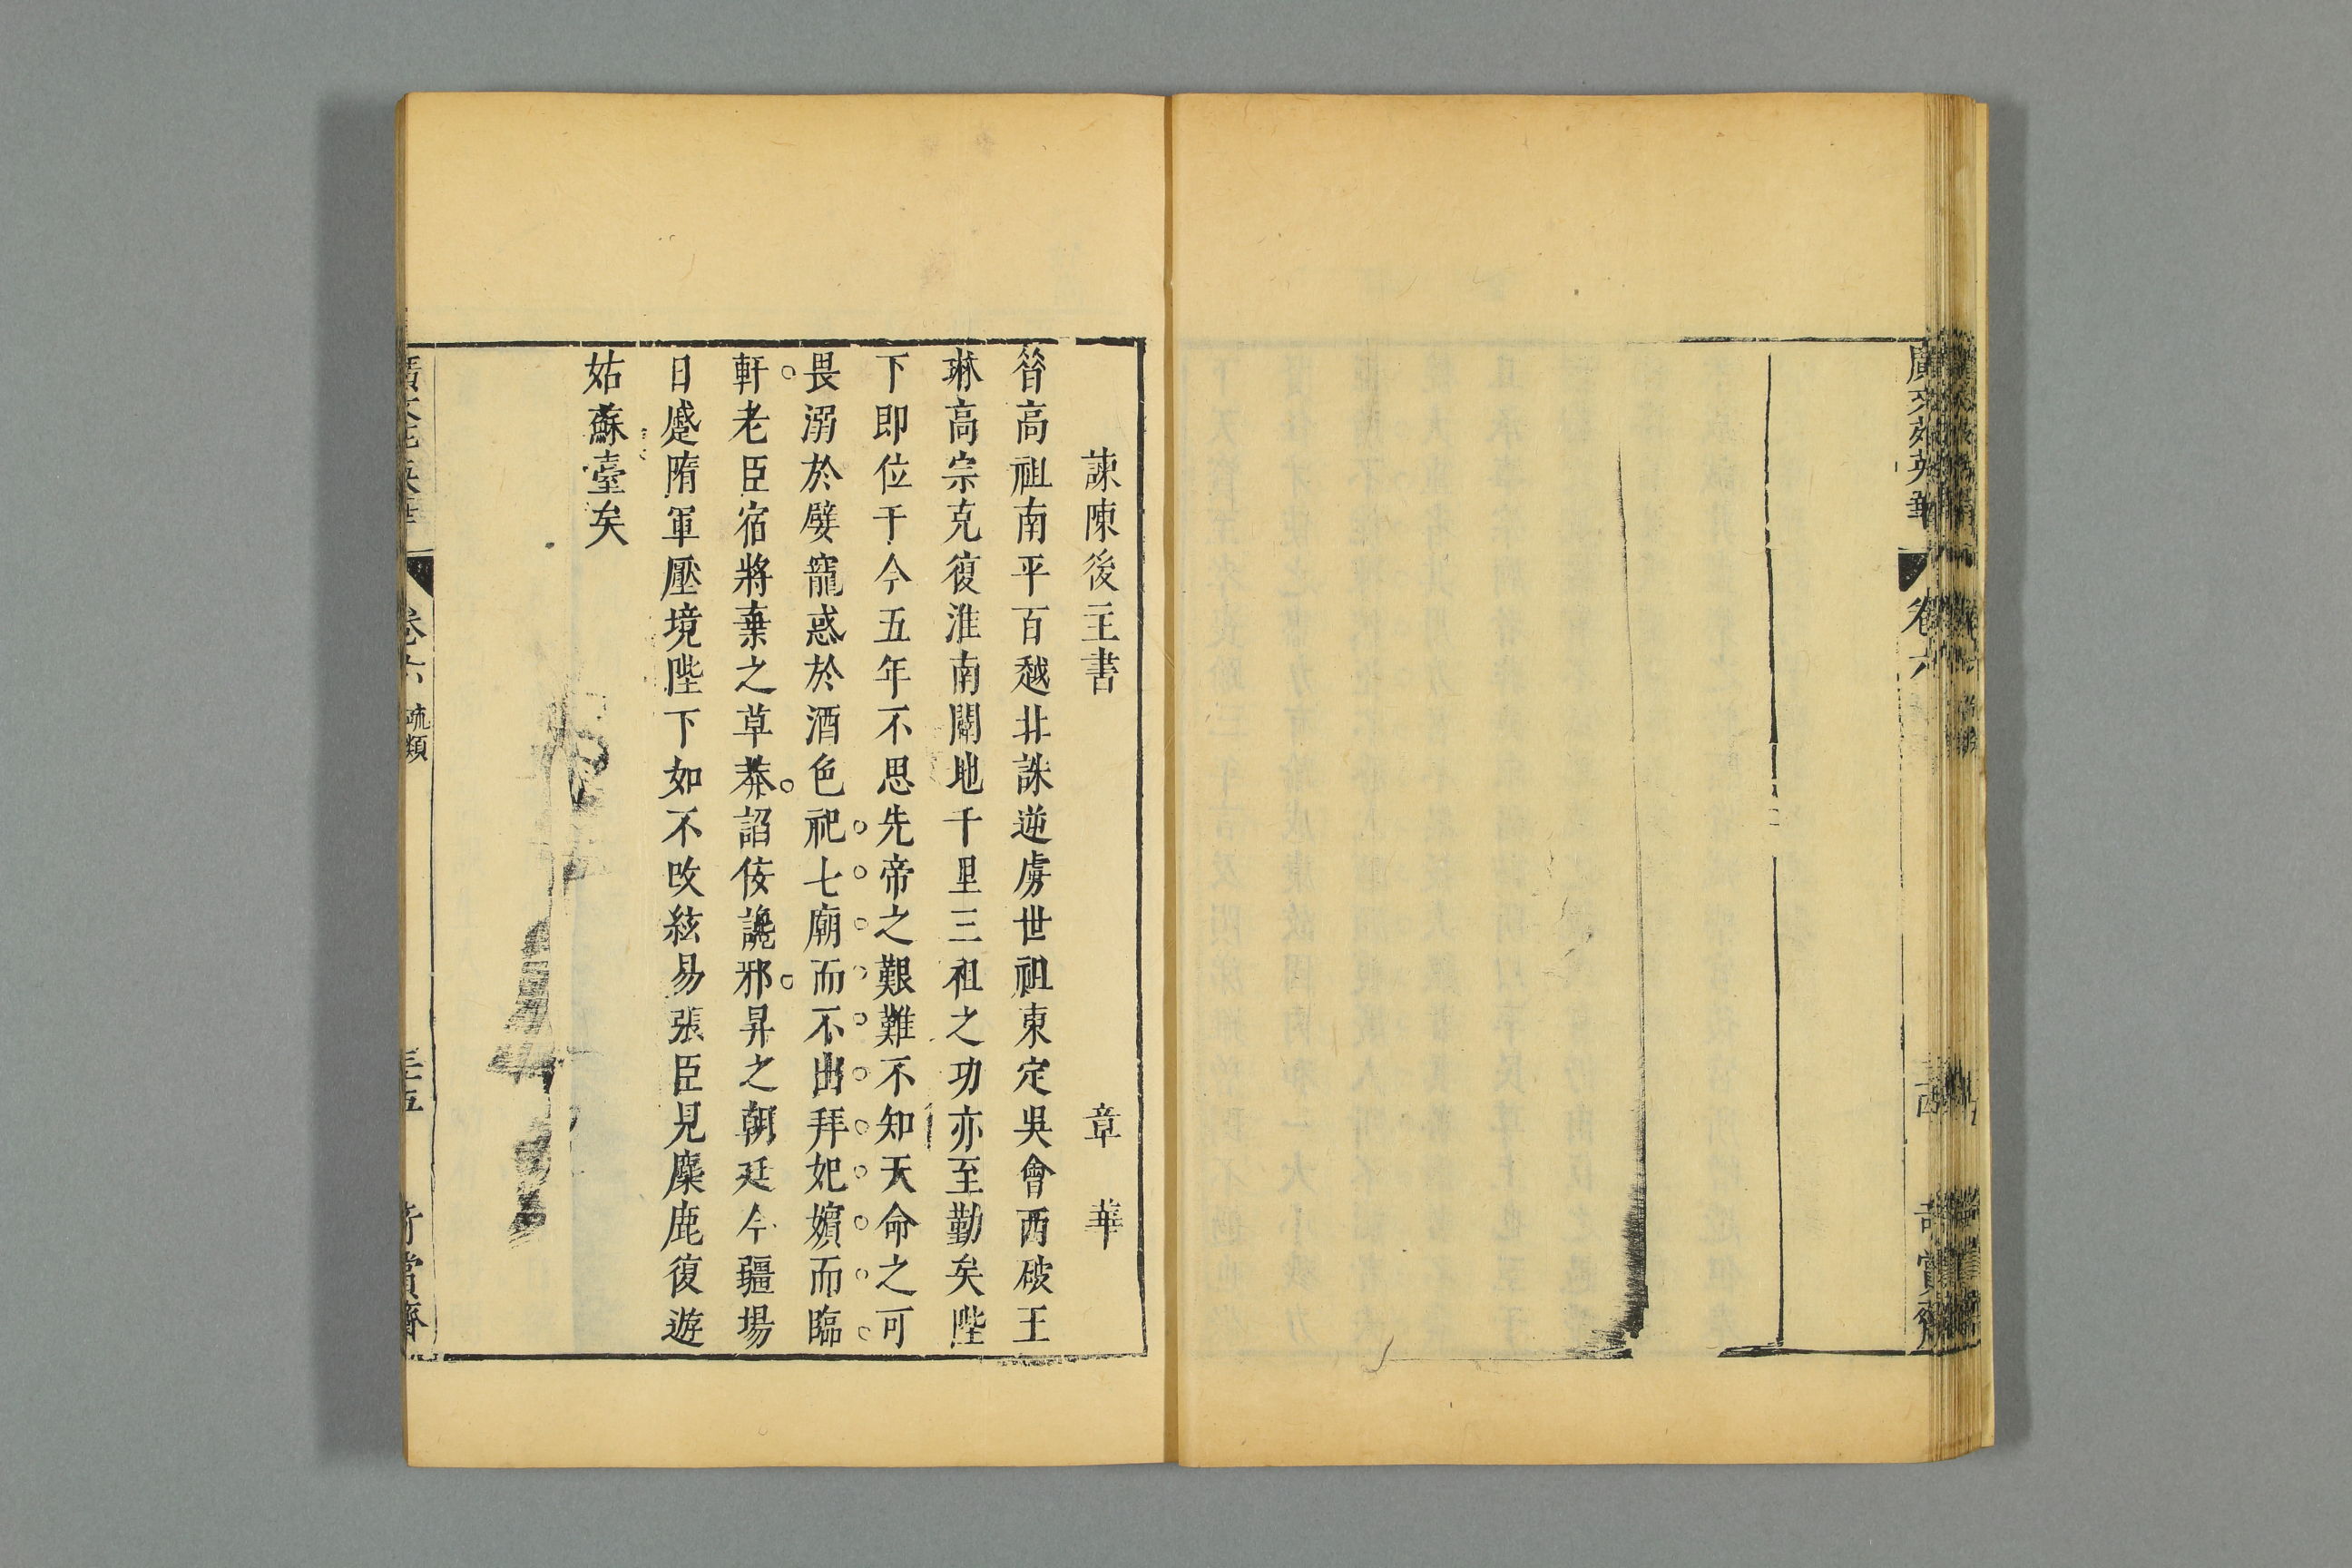 廣文苑英華
卷六
奇賞齋
諫陳後主書
章華
昝高祖南平百越北誅逆虜世祖東定吳會西破王
琳高宗克復淮南闢地千里三祖之功亦至勤矣陛
下即位于今五年不思先帝之艱難不知天命之可
畏溺於嬖寵惑於酒色祀七廟而不出拜妃嬪而臨
軒老臣宿將棄之草莽謟佞讒邪昇之朝廷今疆場
日蹙隋軍壓境陛下如不攺絃易張臣見麋鹿復遊
姑蘇臺矣
廣文苑英華
卷六
疏類
三五
奇賞齋